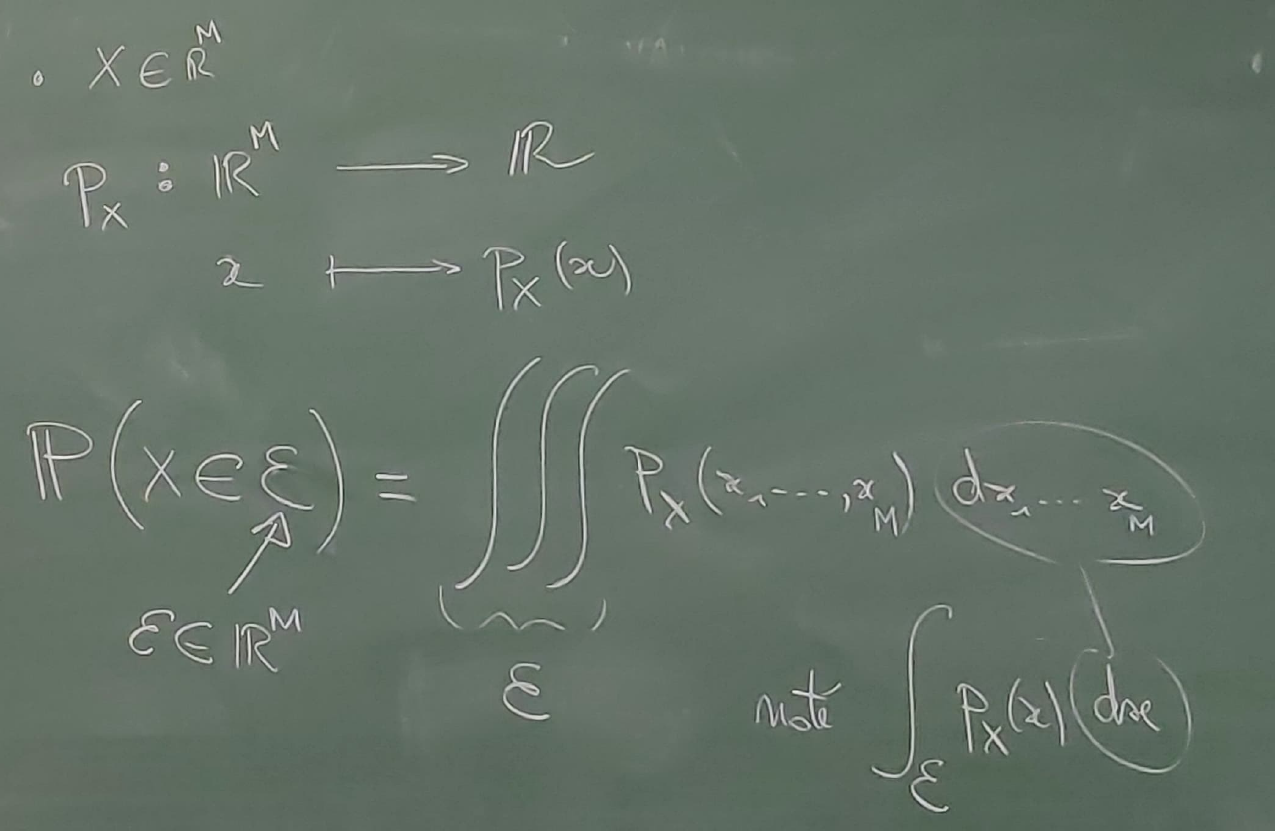 • X ∈ ℝ^M
P_X : ℝ^M ⟶ ℝ
x ⟼ P_X(x)
ℙ(X ∈ ℰ) = ∭_ℰ P_X(x_1, ..., x_M) dx_1 ... x_M
ℰ ∈ ℝ^M
note ∫_ℰ P_X(x) dx